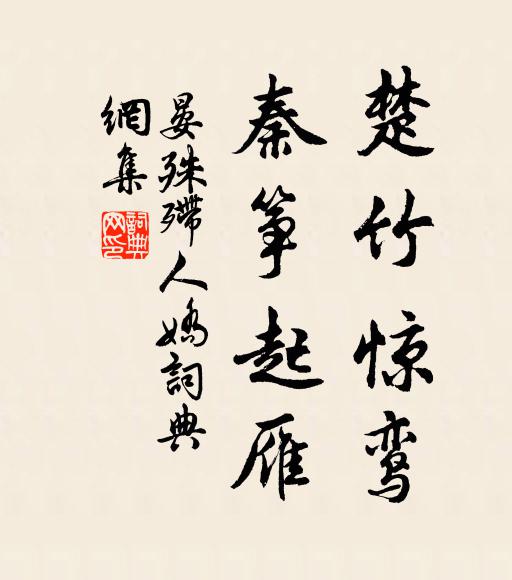 楚竹惊鸾
秦筝起雁
晏殊殢人娇詞典
網集
詞典網印